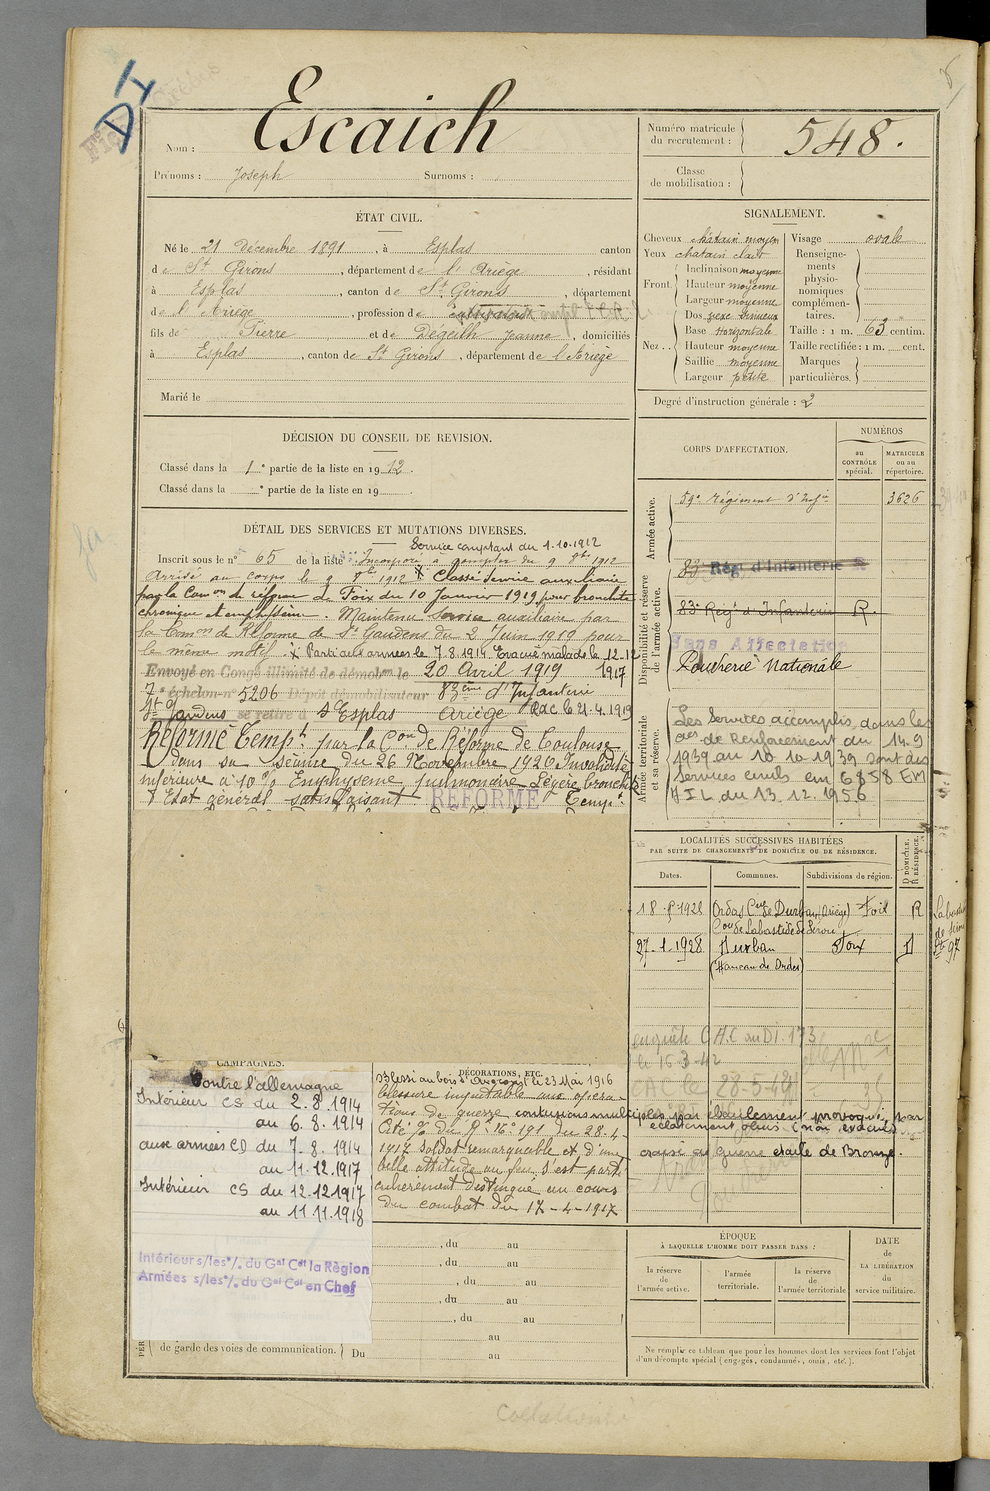 DI
Escaich
Nom :
Prénoms : Joseph Surnoms :
Numéro matricule du recrutement : 548.
Classe de mobilisation :
ÉTAT CIVIL.
Né le 21 Décembre 1891, à Esplas canton
de St Girons, département de l'Ariège, résidant
à Esplas, canton de St Girons, département
de l'Ariège, profession de
fils de Pierre et de Degeilh Jeanne, domiciliés
à Esplas, canton de St Girons, département de l'Ariège
Marié le
SIGNALEMENT.
Cheveux châtain moyen
Yeux châtain clair
Front. Inclinaison moyenne
Hauteur moyenne
Largeur moyenne
Nez.. Dos vexe sinueux
Base horizontale
Hauteur moyenne
Saillie moyenne
Largeur petite
Visage ovale
Renseignements physionomiques complémentaires.
Taille : 1 m. 63 centim.
Taille rectifiée : 1 m. cent.
Marques particulières.
Degré d'instruction générale : 2
DÉCISION DU CONSEIL DE REVISION.
Classé dans la 1e partie de la liste en 1912.
Classé dans la e partie de la liste en 19 .
CORPS D'AFFECTATION.
NUMÉROS
au CONTRÔLE spécial.
MATRICULE ou au répertoire.
Armée active.
59e régiment d'Infie 3626
Disponibilité et réserve de l'armée active.
83e Régt d'Infanterie R
83e Regt d'Infanterie R.
Sans Affectation
Poudrerie Nationale
Armée territoriale et sa réserve.
Les Services accomplis dans les
cies de Renforcement du 14.9
1939 au 10 10 1939 sont des
Services civils em 6858 EM
HIL du 13.12.1956
DÉTAIL DES SERVICES ET MUTATIONS DIVERSES.
Service comptant du 1.10.1912
Inscrit sous le n° 65 de la liste Incorporé à compter du 9 8bre 1912
Arrivé au corps le 9 8bre 1912 X Classé service auxiliaire
par la Comon de réforme de Foix du 10 Janvier 1919 pour bronchite
chronique et emphysème. Maintenu Service auxiliaire par
la Comon de Réforme de St Gaudens du 2 Juin 1919 pour
le même motif. X Parti aux armées le 7.8.1914. Evacué malade le 12.12
1917
Envoyé en Congé illimité de démobon le 20 Avril 1919
7e échelon n° 5206 Dépôt démobilisateur 83ème d'Infanterie
St Gaudens se retire à d'Esplas Ariège Rdc le 21.4.1919
Réformé Tempt par la Con de Réforme de Toulouse
dans sa séance du 26 Novembre 1926 Invalidité
inférieure à 10% Emphysème pulmonaire Légère bronchite
Etat général satisfaisant REFORMÉ Tempt
LOCALITÉS SUCCESSIVES HABITÉES
PAR SUITE DE CHANGEMENTS DE DOMICILE OU DE RÉSIDENCE.
Dates. Communes. Subdivisions de région. D DOMICILE. R RÉSIDENCE.
Ordas Cne de Durban (Ariège) Foix R
Con de Labastide de Sérou
27-1-1928 Durban Foix D
(Hameau de Ordas)
enquête C.H.C au DI. 173
le 16-3-42
CAC le 28-5-41
CAMPAGNES.
Contre l'allemagne
Intérieur CS du 2.8.1914
au 6.8.1914
aux armées CD du 7.8.1914
au 11.12.1917
Intérieur CS du 12.12.1917
au 11.11.1918
Intérieur s/les °/. du Gal Cdt la Règion
Armées s/les °/. du Gal Cdt en Chef
DÉCORATIONS, ETC.
Blessé au bois d'Avocourt le 23 Mai 1916
blessure imputable aux opéra-
tions de guerre contusions multiples par éboulement provoqué par
éclatement obus (non évacué)
Cité R. n° 191 du 28-4-
1917 soldat remarquable et d'une
belle attitude au feu. S'est parti-
culièrement distingué au cours
du combat du 17-4-1917
croix de guerre étoile de Bronze.
, du au
, du au
, du au
, du au
, du au
au
de garde des voies de communication. Du au
ÉPOQUE
À LAQUELLE L'HOMME DOIT PASSER DANS :
la réserve de l'armée active.
l'armée territoriale.
la réserve de l'armée territoriale
DATE de LA LIBÉRATION du service militaire.
Ne remplir ce tableau que pour les hommes dont les services font l'objet
d'un décompte spécial (engagés, condamnés, omis, etc.).